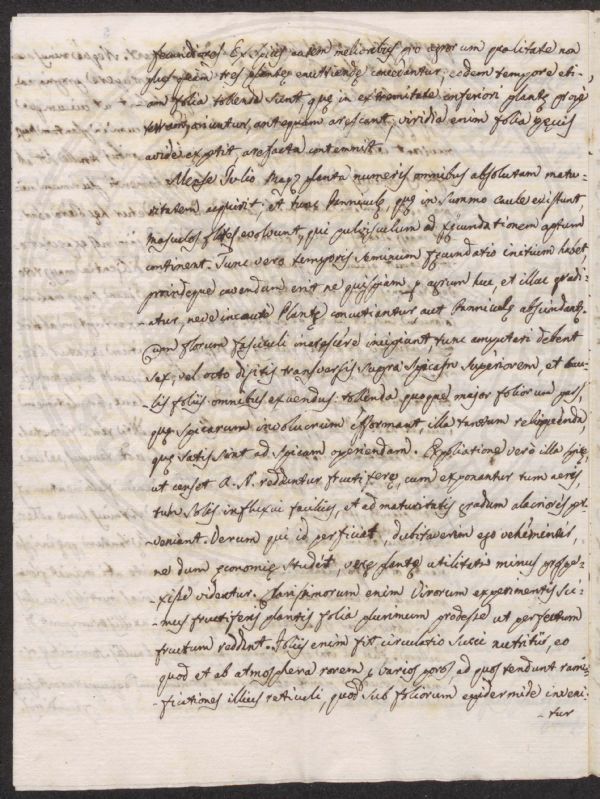 fecundiores. Ex iis autem melioribus pro agrorum qualitate non
plus quam tres plantę enutriendę concedantur; eodem tempore eti-
am folia tollenda sunt, quę in extremitate inferiori plantę prope
terram oriuntur, antequam arescant; viridia enim folia pecus
avide expetit, arefacta contemnit.
Mense Julio Mays planta numeris omnibus absolutam matu-
ritatem acquirit; et tunc Panniculę, quę in summo caule existunt
masculos flores evolvunt, qui pulvisculum ad fęcundationem aptum
continent. Tunc vero temporis seminum fęcundatio initium habet,
proindeque cavendum erit ne quispiam p. agrum huc, et illuc gradi-
atur, neve incautè Plantę concutiantur aut Panniculę abscindantę.
Cum florum fasciculi inarescere incipiant, tunc amputari debent
sex, vel octo digitis transversis supra spicam superiorem, et cau-
lis foliis omnibus exuendus: tollenda quoque major foliorum pars,
quę spicarum involucrum efformant, illa tantum relinquenda,
quę satis sunt ad spicam operiendam. Expoliatione verò illa spicę,
ut censet A. N. redduntur fructiferę, cum exponantur tum aeris,
tum solis influxui facilius, et ad maturitatis gradum alacriores per-
veniant. Verum qui id perficiat, dubitaverim ego vehementer,
ne dum economię studet, verę plantę utilitati minus prospe-
-xisse videatur. Clarissimorum enim Virorum experimentis sci-
-mus fructiferis plantis folia plurimum prodesse ut perfectum
fructum reddant. Foliis enim fit circulatio succi nutritii, eo
quod et ab atmosphera rorem p. varios poros, ad quos tendunt rami-
-ficationes illius reticuli, quod sub foliorum epidermide inveni-
-tur